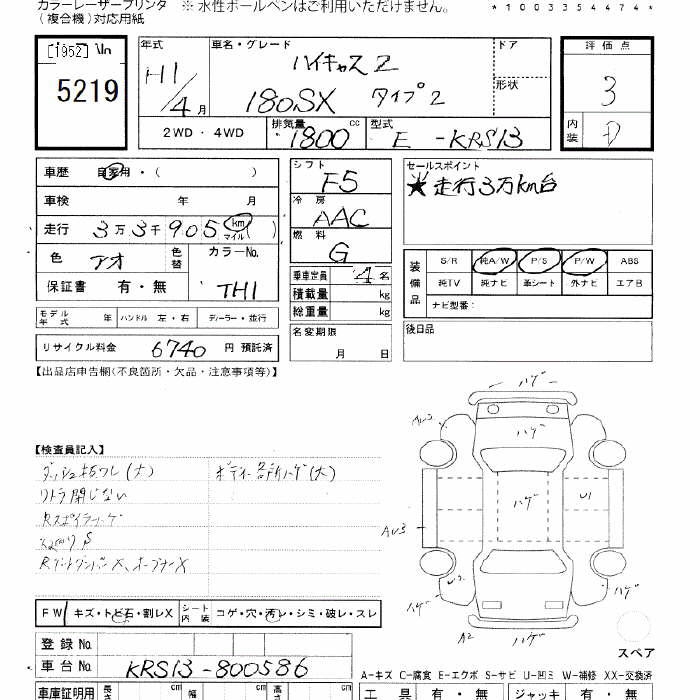 カラーレーザープリンタ ※ 水性ボールペンはご利用いただけません。 *1003354474*
(複合機)対応用紙
[1952] 5219
年式 H1/4月
車名・グレード ハイキャスZ
180SX タイプ2
ドア
形状
評価点 3
内装 D
2WD・4WD 排気量 1800 cc 型式 E-KRS13
車歴 自家用・( )
車検 年 月
走行 3万3千905 km マイル ( )
色 アオ 色替 カラーNo. TH1
保証書 有・無
シフト F5
冷房 AAC
燃料 G
乗車定員 4名
積載量 kg
総重量 kg
名変期限 月 日
セールスポイント
★走行3万km台
装備品 S/R 純A/W P/S P/W ABS
純TV 純ナビ 革シート 外ナビ エアB
ナビ型番:
後日品
モデル年式 年 ハンドル 左・右 ディーラー・並行
リサイクル料金 6740 円 預託済
【出品店申告欄(不良箇所・欠品・注意事項等)】
【検査員記入】
ダッシュ板ワレ(大) ボディー各所ハゲ(大)
リトラ閉じない
Rスポイラーハゲ
Rゲートダンパー X、オープナー X
ハゲ
ハゲ
ハゲ
U1
AU3
AU3
U3
ハゲ
ハゲ
A2
ハゲ
スペア
FW キズ・トビ石・割レX シート内装 コゲ・穴・汚レ・シミ・破レ・スレ
登録No.
車台No. KRS13-800586
A-キズ C-腐食 E-エクボ S-サビ U-凹ミ W-補修 XX-交換済
車庫証明用 長さ cm 幅 cm 高さ cm 工具 有・無 ジャッキ 有・無